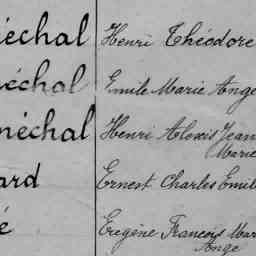 échal Henri Théodore
échal Emile Marie Ange
néchal Henri Alexis Jean
Marie
ard Ernest Charles Emil
é Eugène François Mar
Ange